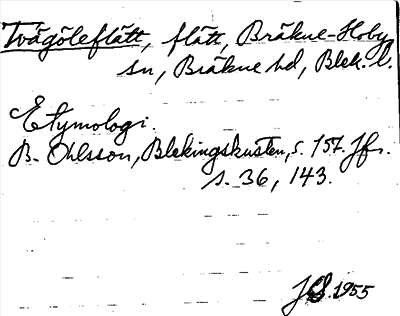 Tvågöleflått, flått, Bräkne-Hoby
sn, Bräkne hd, Blek. l.
Etymologi.
B. Ohlsson, Blekingskusten, s. 157. Jfr.
s. 36, 143.
1955